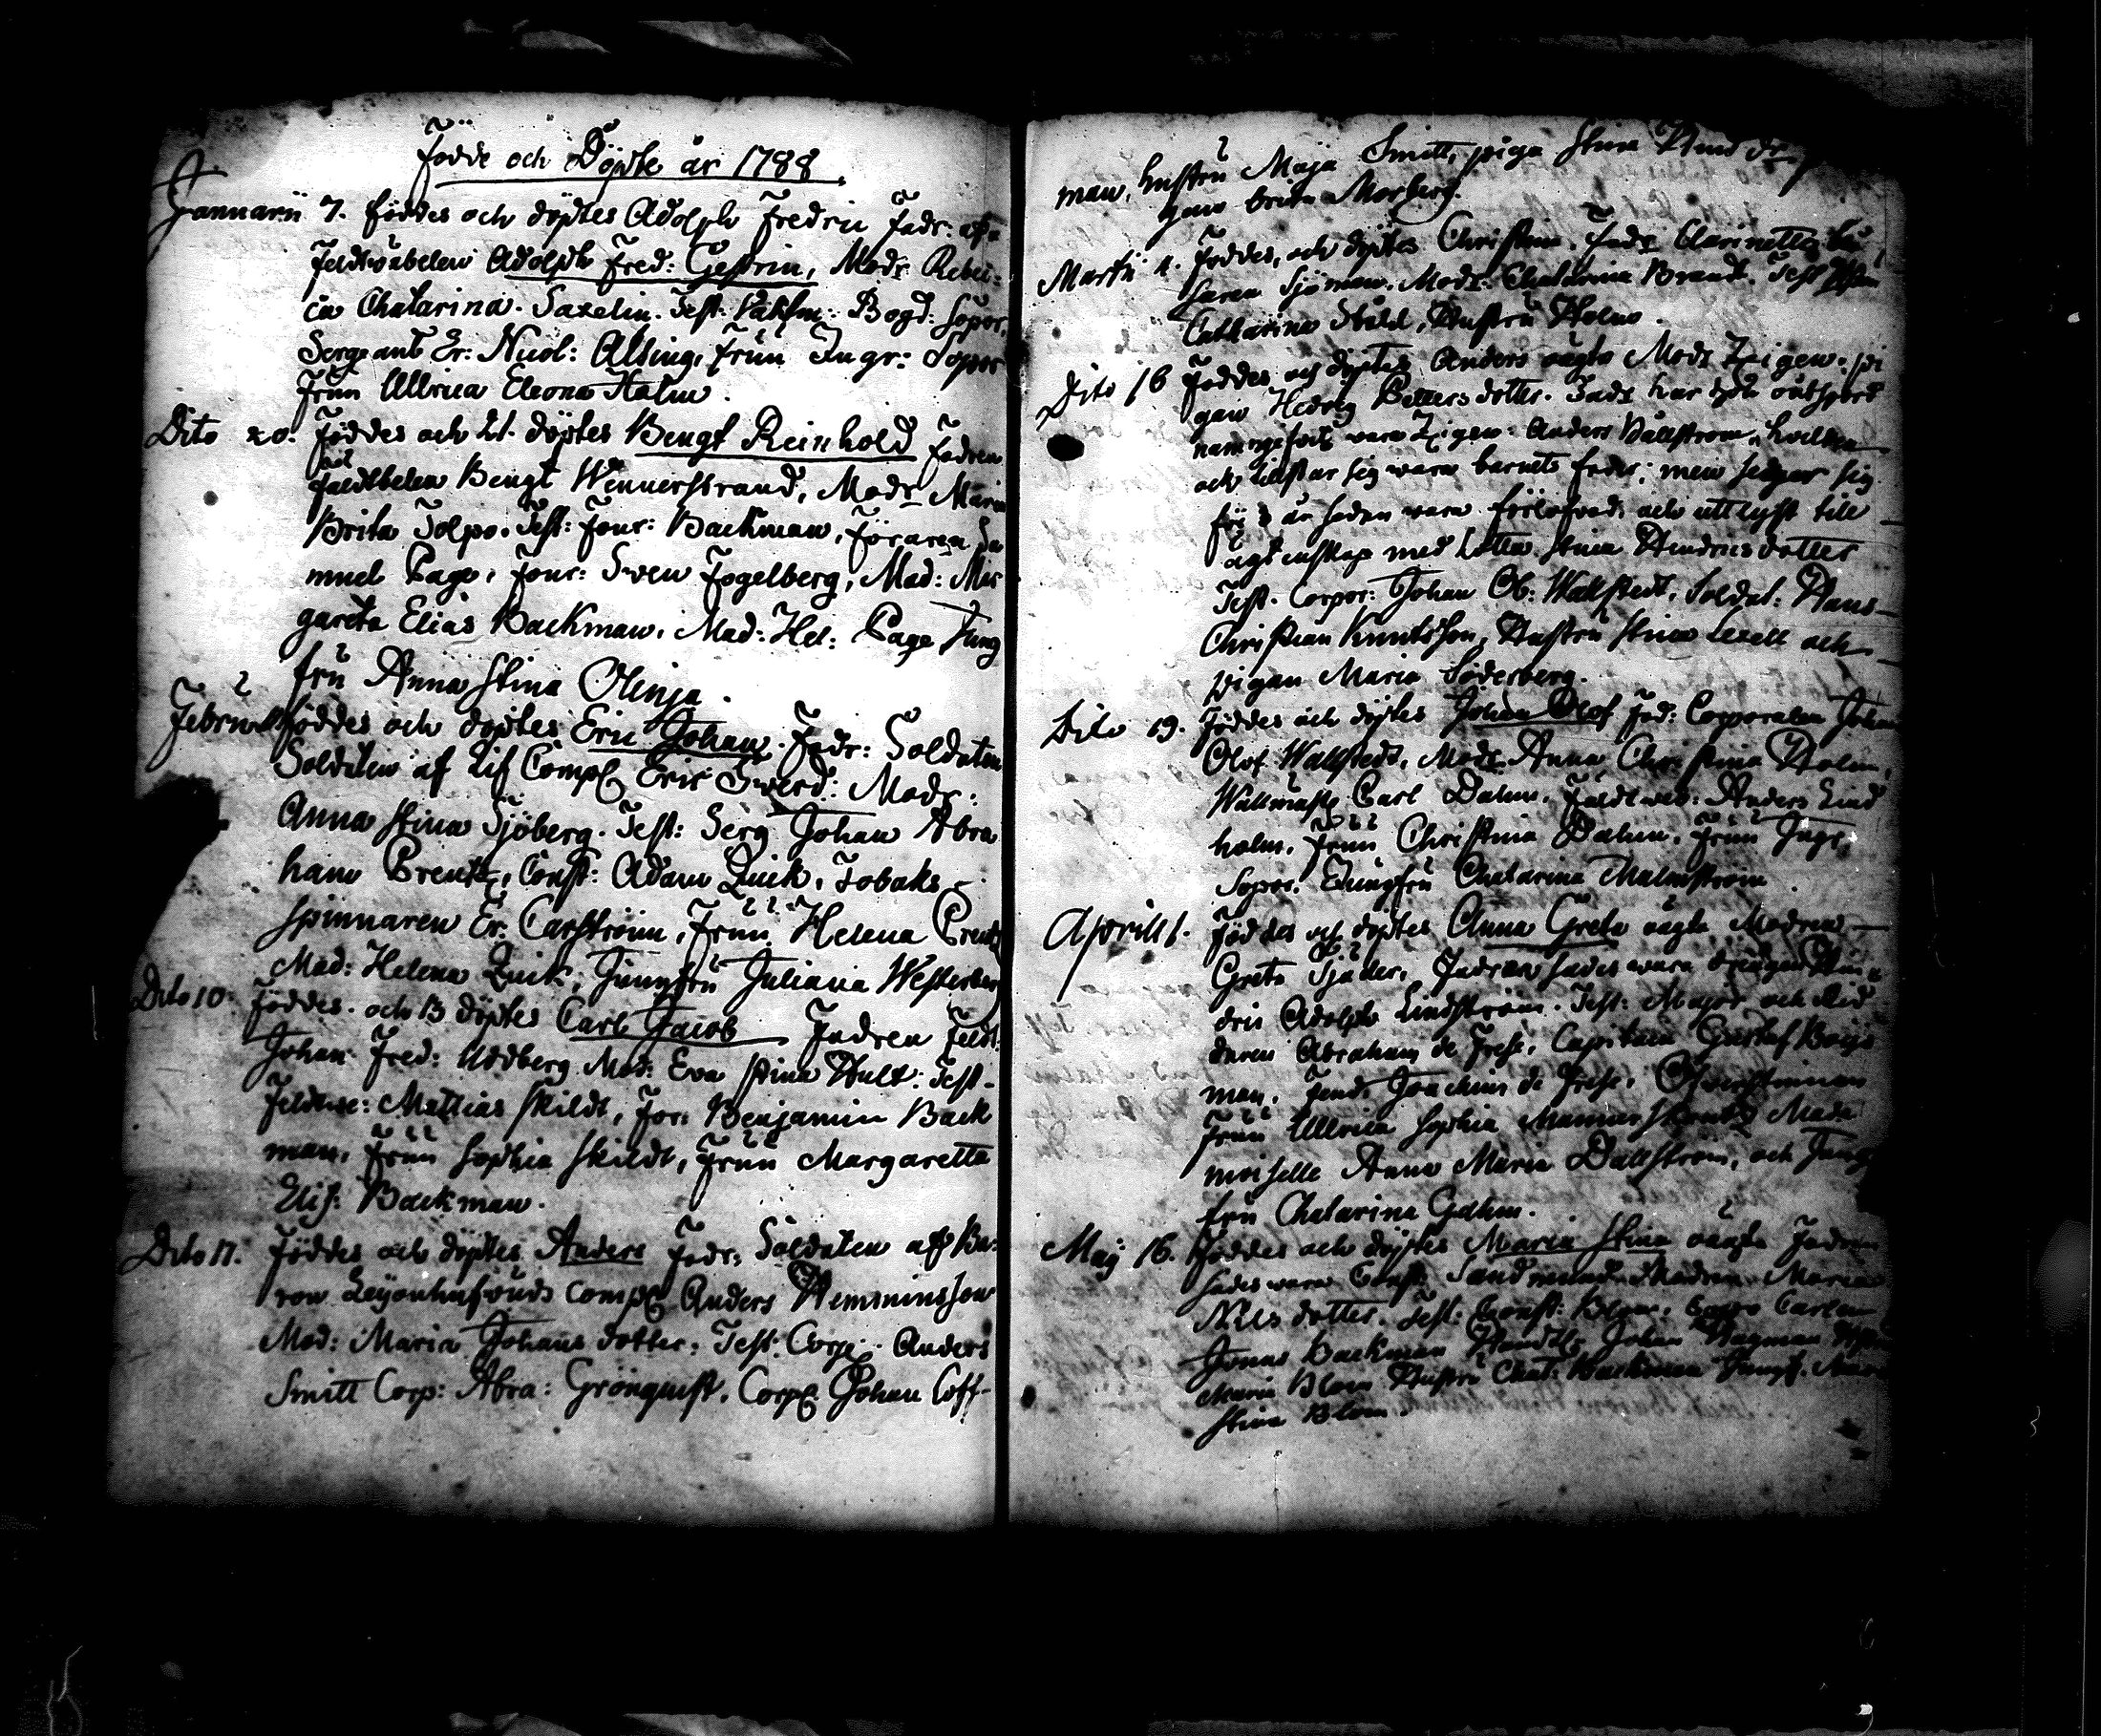 Födde och Döpte år 1788.
Januarii 7. föddes och döptes Adolph Fredric Fadr:
Feldtväbelen Adolph Fred: Gestrin, Modr Rebec-
ca Chatarina Saxelin. Test: Bogd: Sopor,
Sergeant Er: Nicol: Alsing, fruu Ingr: Sopor
Fruu Ullrica Eleona Holm.
Dito 20. föddes och 21. döptes Bengt Reinhold Fadren
Bengt Wennerstrand, Modr Maria
Brita Tolpo. Test: Four: Backman, Föraren Sa
muel Page, four: Swen Fogelberg, Mad: Mar
gareta Elias Backman, Mad: Hel: Page Jung
fru Anna Stina Olinja.
Februa föddes och döptes Eric Johan. Fadr: Soldaten
Soldaten af Lif Comp Eric Swerd: Modr:
Anna Stina Sjöberg. Test: Serg Johan Abra
ham Brentz, Const: Adam Quick, Tobaks-
spinnaren Er: Carström, Fruu Helena Brentz
Mad: Helena Quick, Jungfru Juliana Westerberg
Dito 10. föddes och 13 döptes Carl Jacob Fadren Feldt:
Johan Fred: Uddberg Mod: Eva Stina Hult: Test-
Feldtwe: Mattias Skildt, For: Benjamin Back
man, Fruu Sophia Skildt, Fruu Margaretta
Elis: Backman.
Dito 17. föddes och döptes Anders Fadr: Soldaten af Ba-
ron Leyonhufvuds Comp Anders Hemminsson
Mod: Maria Johans dotter: Test: Corp: Anders
Smitt Corp: Abra: Grönquist, Corp Johan Coff-
man, hustru Maja Smitt, piga Stina
gan Brita Morberg.
Martii föddes, och döptes Christina, Fadr Clarinette
Sjöman, Modr: Chatarina Brandt. Test
Catharina Ståhl, Hustru Holm.
Dito 16 föddes och döptes Anders oägta Modr pi
gan Hedvig Petters dotter. Fadr har
vara Anders Källström, hvilken
och tillstår sig wara barnets fader; men säger sig
för 3 år sedan wara förlofvad, och uttlyst till
ägtenskap med Lotta Stina Hindrics dotter
Test. Corpor: Johan Ol: Wallstedt, Soldat: Hans
Christian Knutsson, Hustru Stina Lexell och
pigan Maria Söderberg.
Dito 19. föddes och döptes Johan Olof Fad: Corporalen Johan
Olof Wallstedt, Modr Anna Christina Holm,
Carl Dahm, Anders Lind
holm, Fruu Christina Dahm, Fruu Ingr,
Sopor. Jungfru Chatarina Malmström
Aprill 1. föddes och döptes Anna Greta oägta Modren
Greta Sjöder, Fadren sades wara drängen
dric Adolph Lindström. Test: Major och Rid
daren Abraham de Frese, Capitain Gustaf Boije
man, Fend: Joachim de Frese, Öfwerstinnan
Fruu Ullrica Sophia Mannerskantz Made
moiselle Anna Maria Dallström, och Jung
fru Chatarina Gahm.
Maij 16. föddes och döptes Maria Stina oägta Fadren
sades wara Const: Sandmund Modren Maria
Nils dotter. Test: Const: Blom, Carlen
Jonas Backman Johan Hagman
Maria Blom Hustru Chat: Backman Jungf.
Stina Blom.